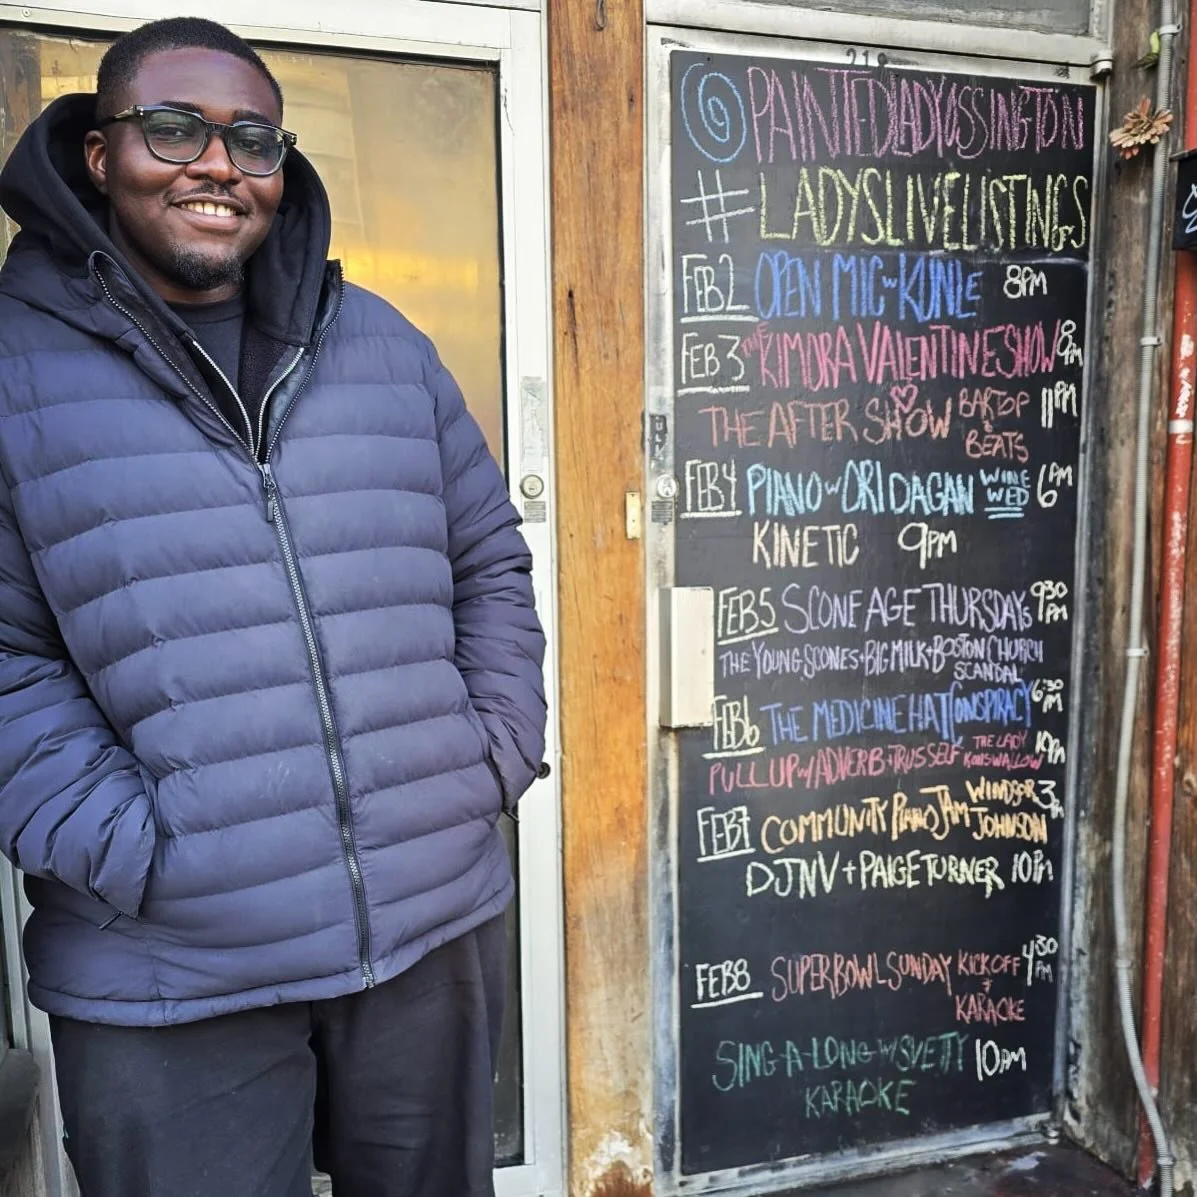 218
@PAINTEDLADYOSSINGTON
#LADYSLIVELISTINGS
FEB 2 OPEN MIC w KUNLE 8PM
FEB 3 THE KIMORA VALENTINE SHOW 8PM
THE AFTER SHOW BARTOP & BEATS 11PM
FEB 4 PIANO w ORI DAGAN WINE WED 6PM
KINETIC 9PM
FEB 5 SCONE AGE THURSDAYS 930 PM
THE YOUNG SCONES + BIG MILK + BOSTON CHURCH SCANDAL
FEB 6 THE MEDICINE HAT CONSPIRACY 6:30 PM
PULL UP w/ ADVERB + TRUS SELF THE LADY KONSWALLOW 10PM
FEB 7 COMMUNITY PIANO JAM WINDSOR JOHNSON 3PM
DJNV + PAIGE TURNER 10PM
FEB 8 SUPERBOWL SUNDAY KICKOFF + KARAOKE 430 PM
SING-A-LONG w/ SVETY 10PM
KARAOKE